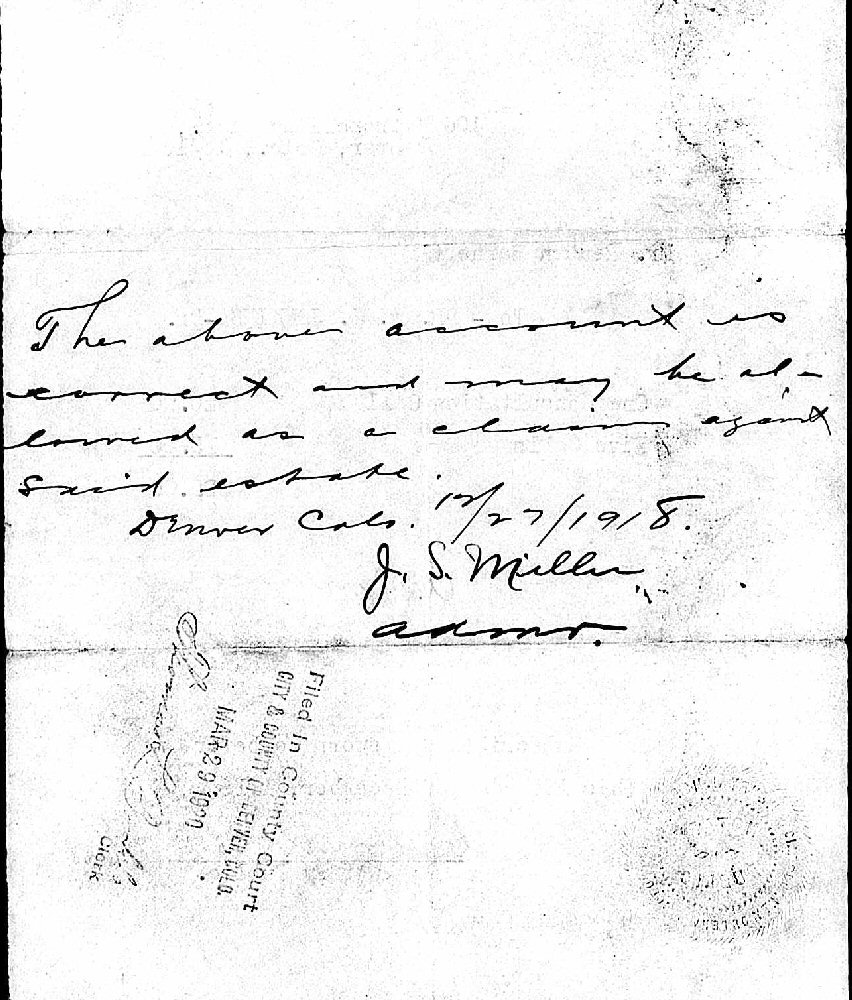 The above account is
correct and may be al-
lowed as a claim against
said estate.
Denver Colo. 12/27/1918.
J. S. Miller
admr.
Filed In County Court
CITY & COUNTY OF DENVER, COLO.
MAR 29 1920
Clerk